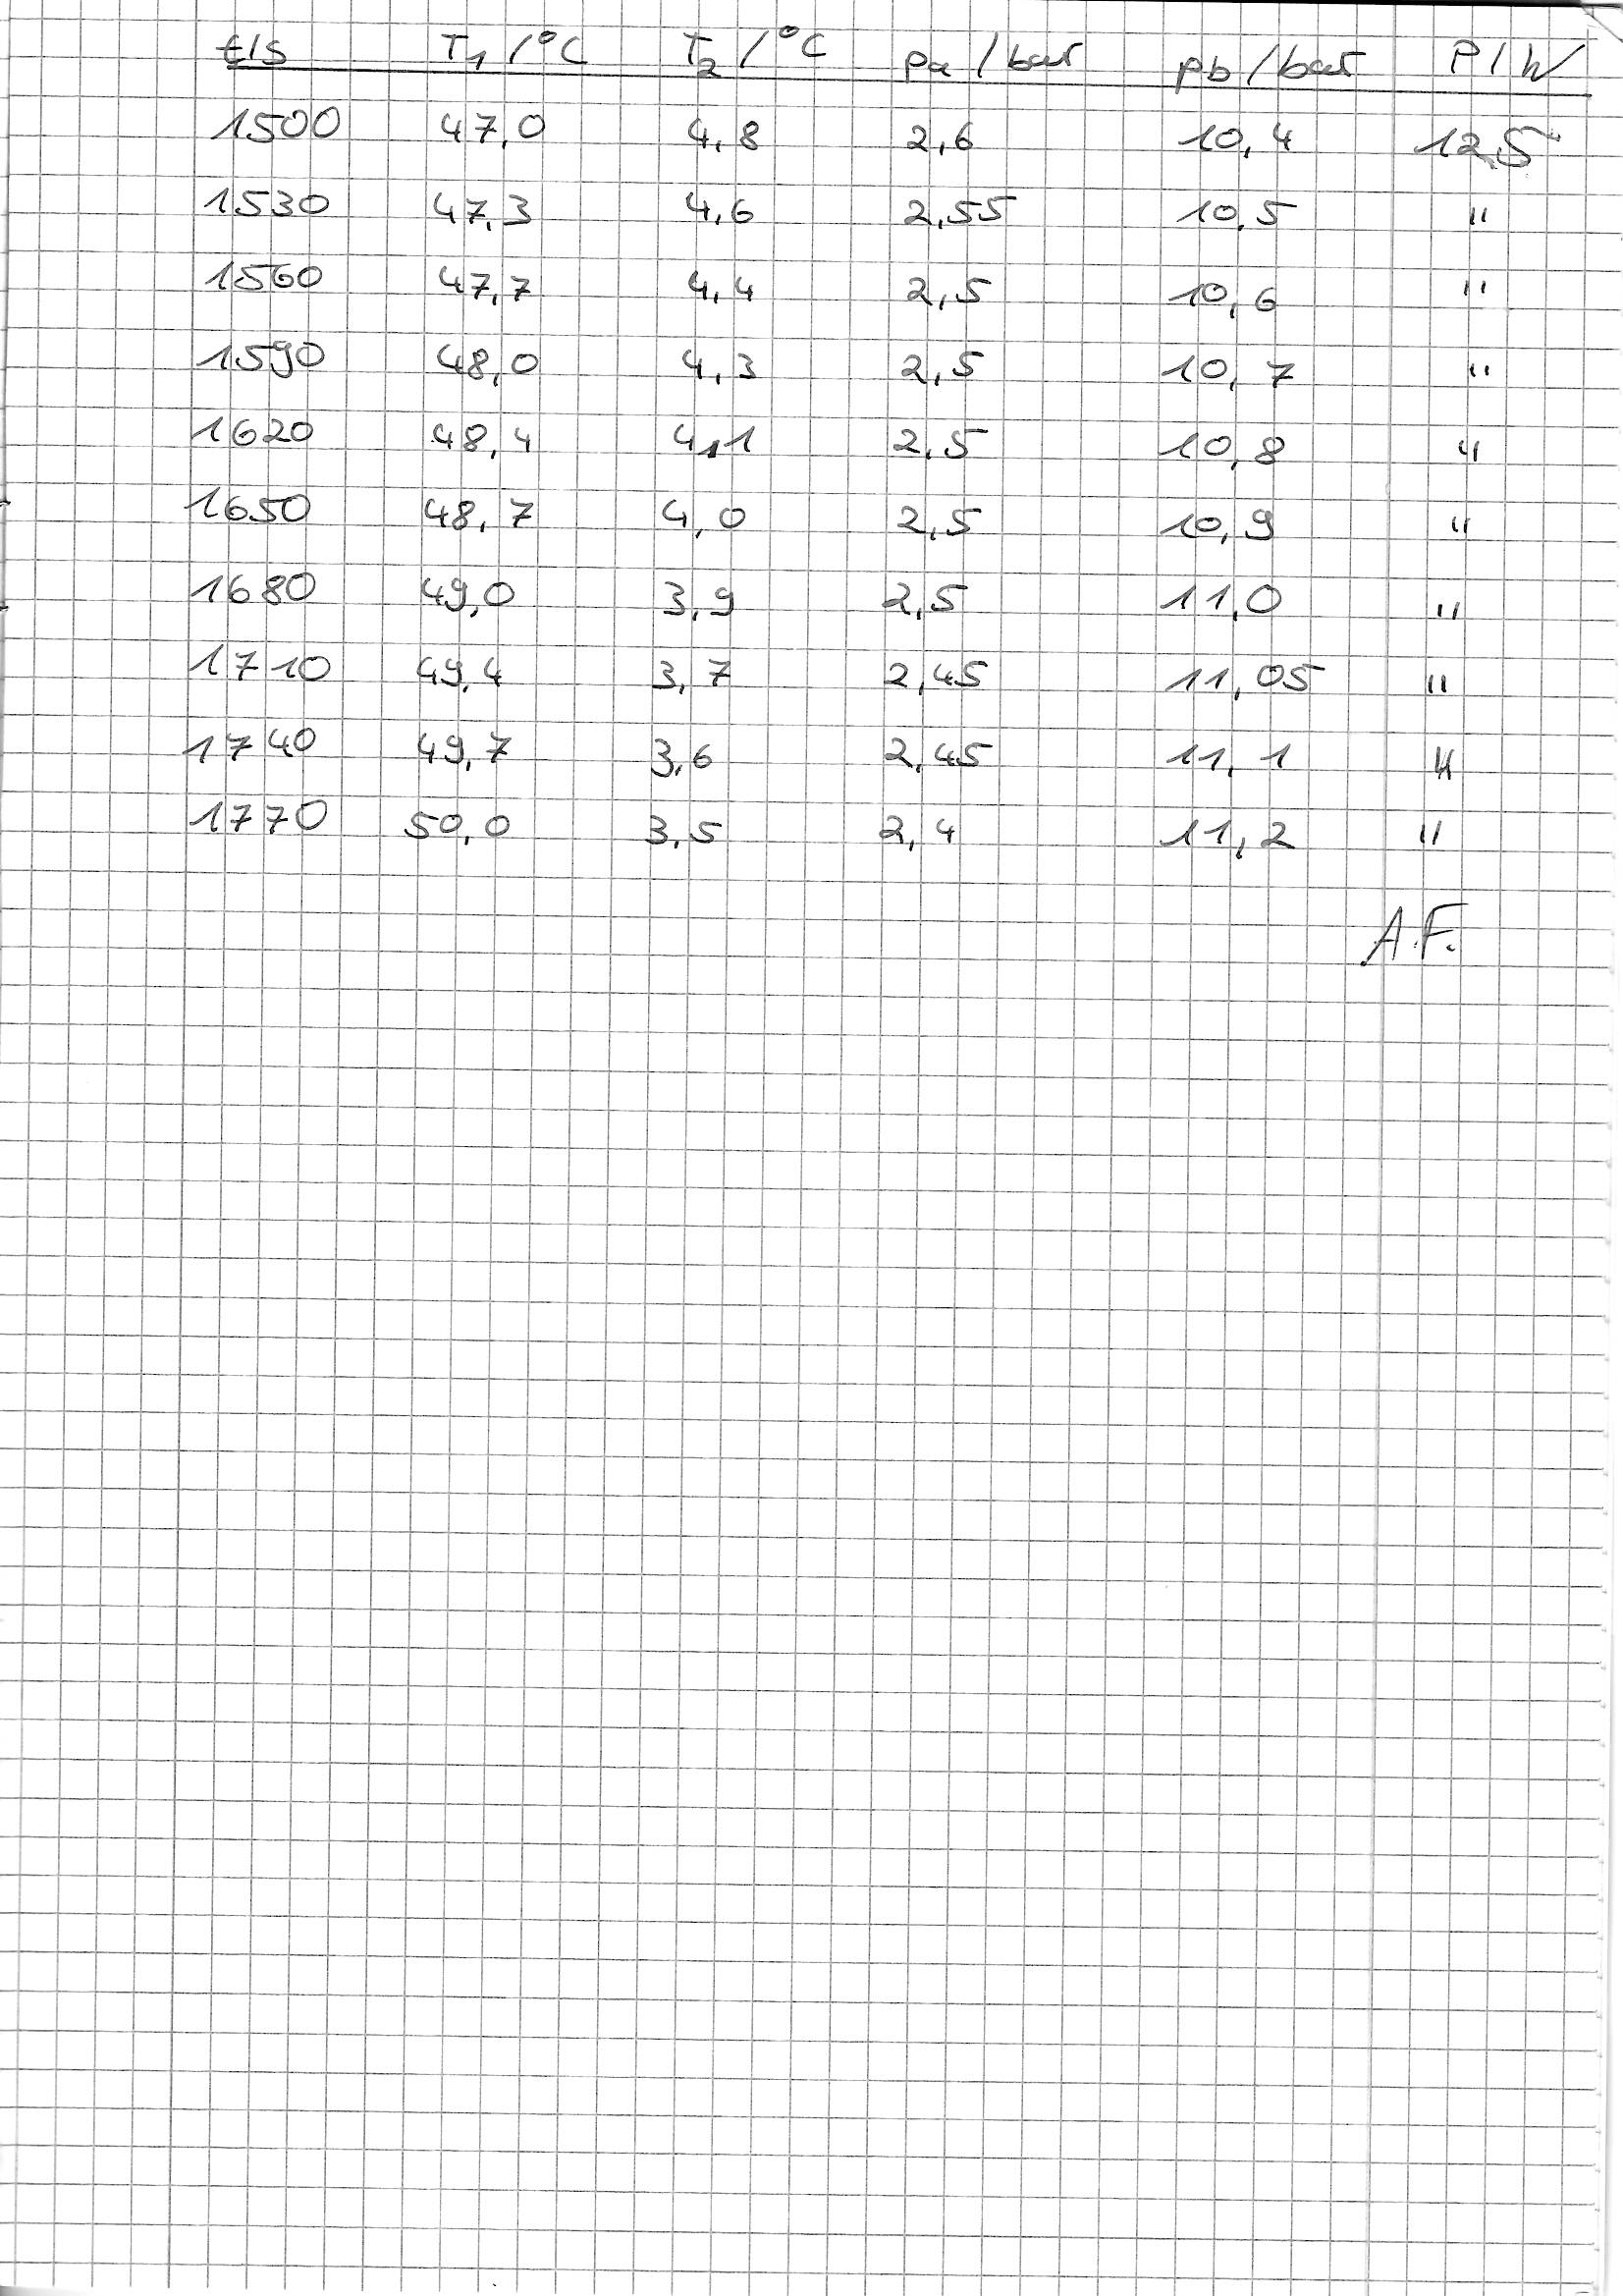 t/s T₁ /°C T₂ /°C pa /bar pb /bar P/W
1500 47,0 4,8 2,6 10,4 125
1530 47,3 4,6 2,55 10,5 "
1560 47,7 4,4 2,5 10,6 "
1590 48,0 4,3 2,5 10,7 "
1620 48,4 4,1 2,5 10,8 "
1650 48,7 4,0 2,5 10,9 "
1680 49,0 3,9 2,5 11,0 "
1710 49,4 3,7 2,45 11,05 "
1740 49,7 3,6 2,45 11,1 "
1770 50,0 3,5 2,4 11,2 "
A.F.